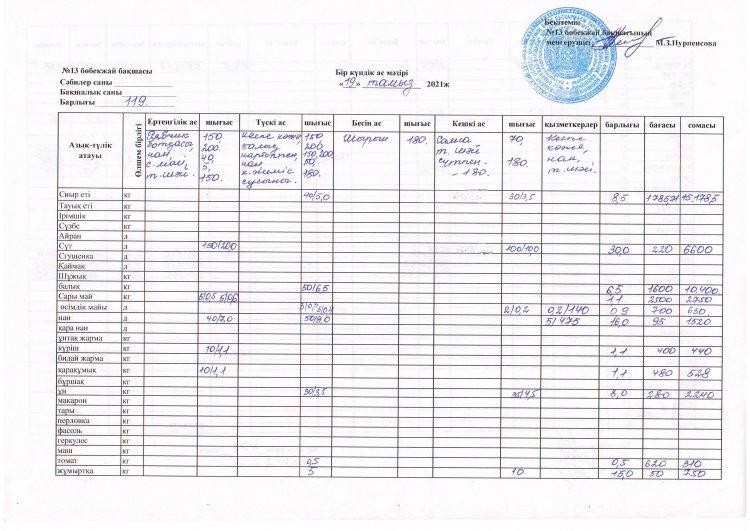 Бекітемін
№13 бөбекжай бақшасының
меңгерушісі М.З.Нурпенсова
№13 бөбекжай бақшасы
Сәбилер саны
Бақшалық саны
Барлығы 119
Бір күндік ас мәзірі
«19» тамыз 2021ж
Азық-түлік атауы Өлшем бірлігі Ертеңгілік ас шығыс Түскі ас шығыс Бесін ас шығыс Кешкі ас шығыс қызметкерлер барлығы бағасы сомасы
ботқасы 150 200. 40, 5, 150.
нан
с.май,
т.шәй.
Кеспе көже, 150 200, 150,200, 50, 180.
балық
нан
180.
Самса 70, 180.
т.шәй
сүтпен.
-180.
Кеспе
көже,
нан,
т.шәй.
Сиыр еті кг 40/5,0 30/3,5 8,5 15.178,5
Тауық еті кг
Ірімшік кг
Сүзбе кг
Айран л
Сүт л 150/200 100/10,0 30,0 220 6600
Сгущенка л
Қаймақ кг
Шұжық кг
балық кг 50/6,5 6,5 1600 10.400
Сары май кг 5/0,5 5/0,6 1,1 2500 2750
өсімдік майы л 2/0,2 0,2/140 0,9 700 630
нан л 40/7,0 50/9,0 5/475 16,0 95 1520
қара нан л
ұнтақ жарма кг
күріш кг 10/1,1 1,1 400 440
бидай жарма кг
қарақұмық кг 10/1,1 1,1 480 528
бұршақ кг
ұн кг 30/3,5 35/4,5 8,0 280 2.240
макарон кг
тары кг
перловка кг
фасоль кг
геркулес кг
маш кг
томат кг 0,5 0,5 620 310
жұмыртқа кг 5 10 15,0 50 750